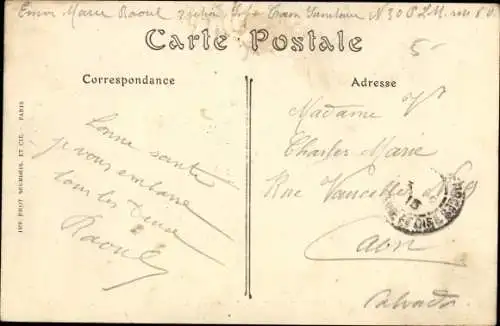 Envoi Marie Raoul Train Sanitaire N 30 P.L.M.
Carte Postale
5
Correspondance
Adresse
Bonne santé
je vous embrasse
tous les deux
Raoul
Madame Vve
Charles Marie
Rue Vaucelles
Caen
Calvados
IMP. PHOT. NEURDEIN ET CIE. - PARIS